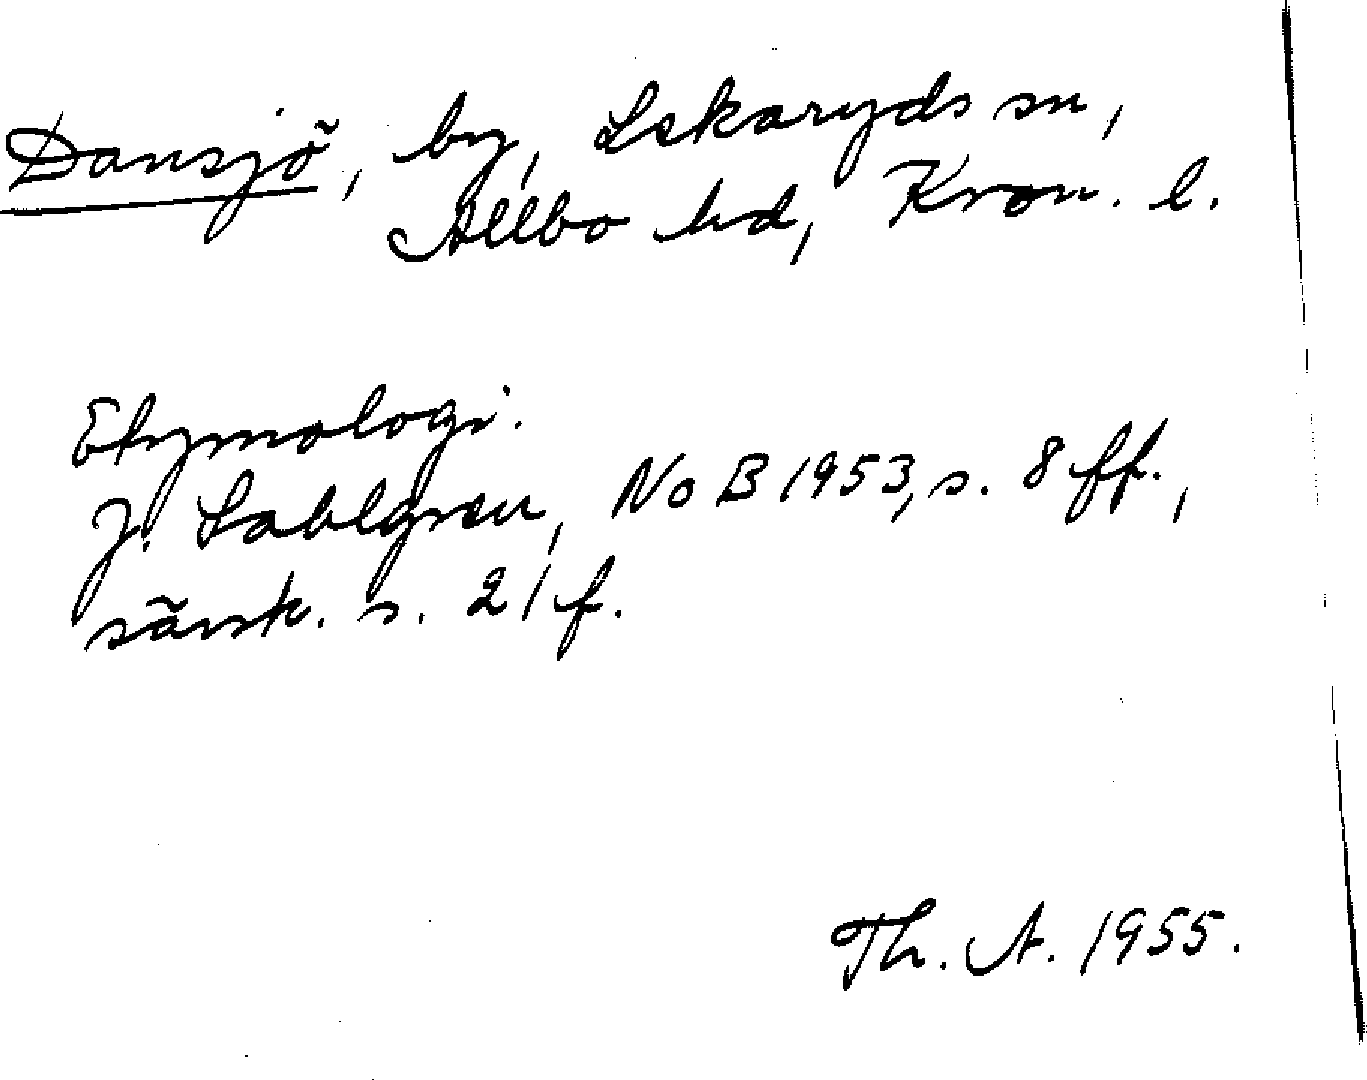 Dansjö, by, Lekaryds sn,
Allbo hd, Kron. l.
Etymologi.
J. Sahlgren, NoB 1953, s. 8 ff.,
särsk. s. 21 f.
Th. A. 1955.